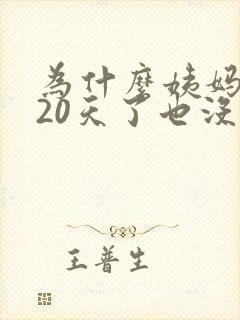 為什麼姨妈
20天了也没
王普生